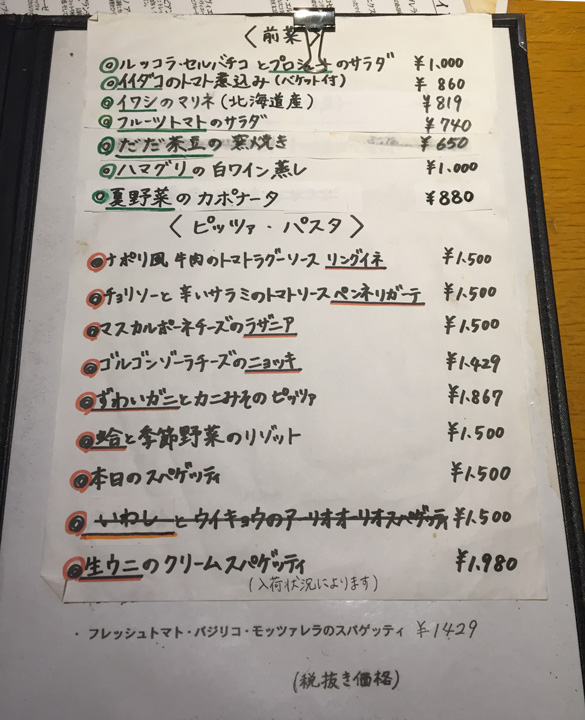 〈前菜〉
◎ルッコラ・セルバチコとプロシュートのサラダ ¥1,000
◎イイダコのトマト煮込み(バケット付) ¥860
◎イワシのマリネ(北海道産) ¥819
◎フルーツトマトのサラダ ¥740
◎だだ茶豆の窯焼き ¥650
◎ハマグリの白ワイン蒸し ¥1,000
◎夏野菜のカポナータ ¥880
〈ピッツァ・パスタ〉
◎ナポリ風 牛肉のトマトラグーソース リングイネ ¥1.500
◎チョリソーと辛いサラミのトマトソース ペンネリガーテ ¥1.500
◎マスカルポーネチーズのラザニア ¥1.500
◎ゴルゴンゾーラチーズのニョッキ ¥1.429
◎ずわいガニとカニみそのピッツァ ¥1.867
◎蛤と季節野菜のリゾット ¥1.500
◎本日のスパゲッティ ¥1.500
◎いわしとウイキョウのアーリオオーリオスパゲッティ ¥1.500
◎生ウニのクリームスパゲッティ ¥1.980
(入荷状況によります)
・フレッシュトマト・バジリコ・モッツァレラのスパゲッティ ¥1429
(税抜き価格)